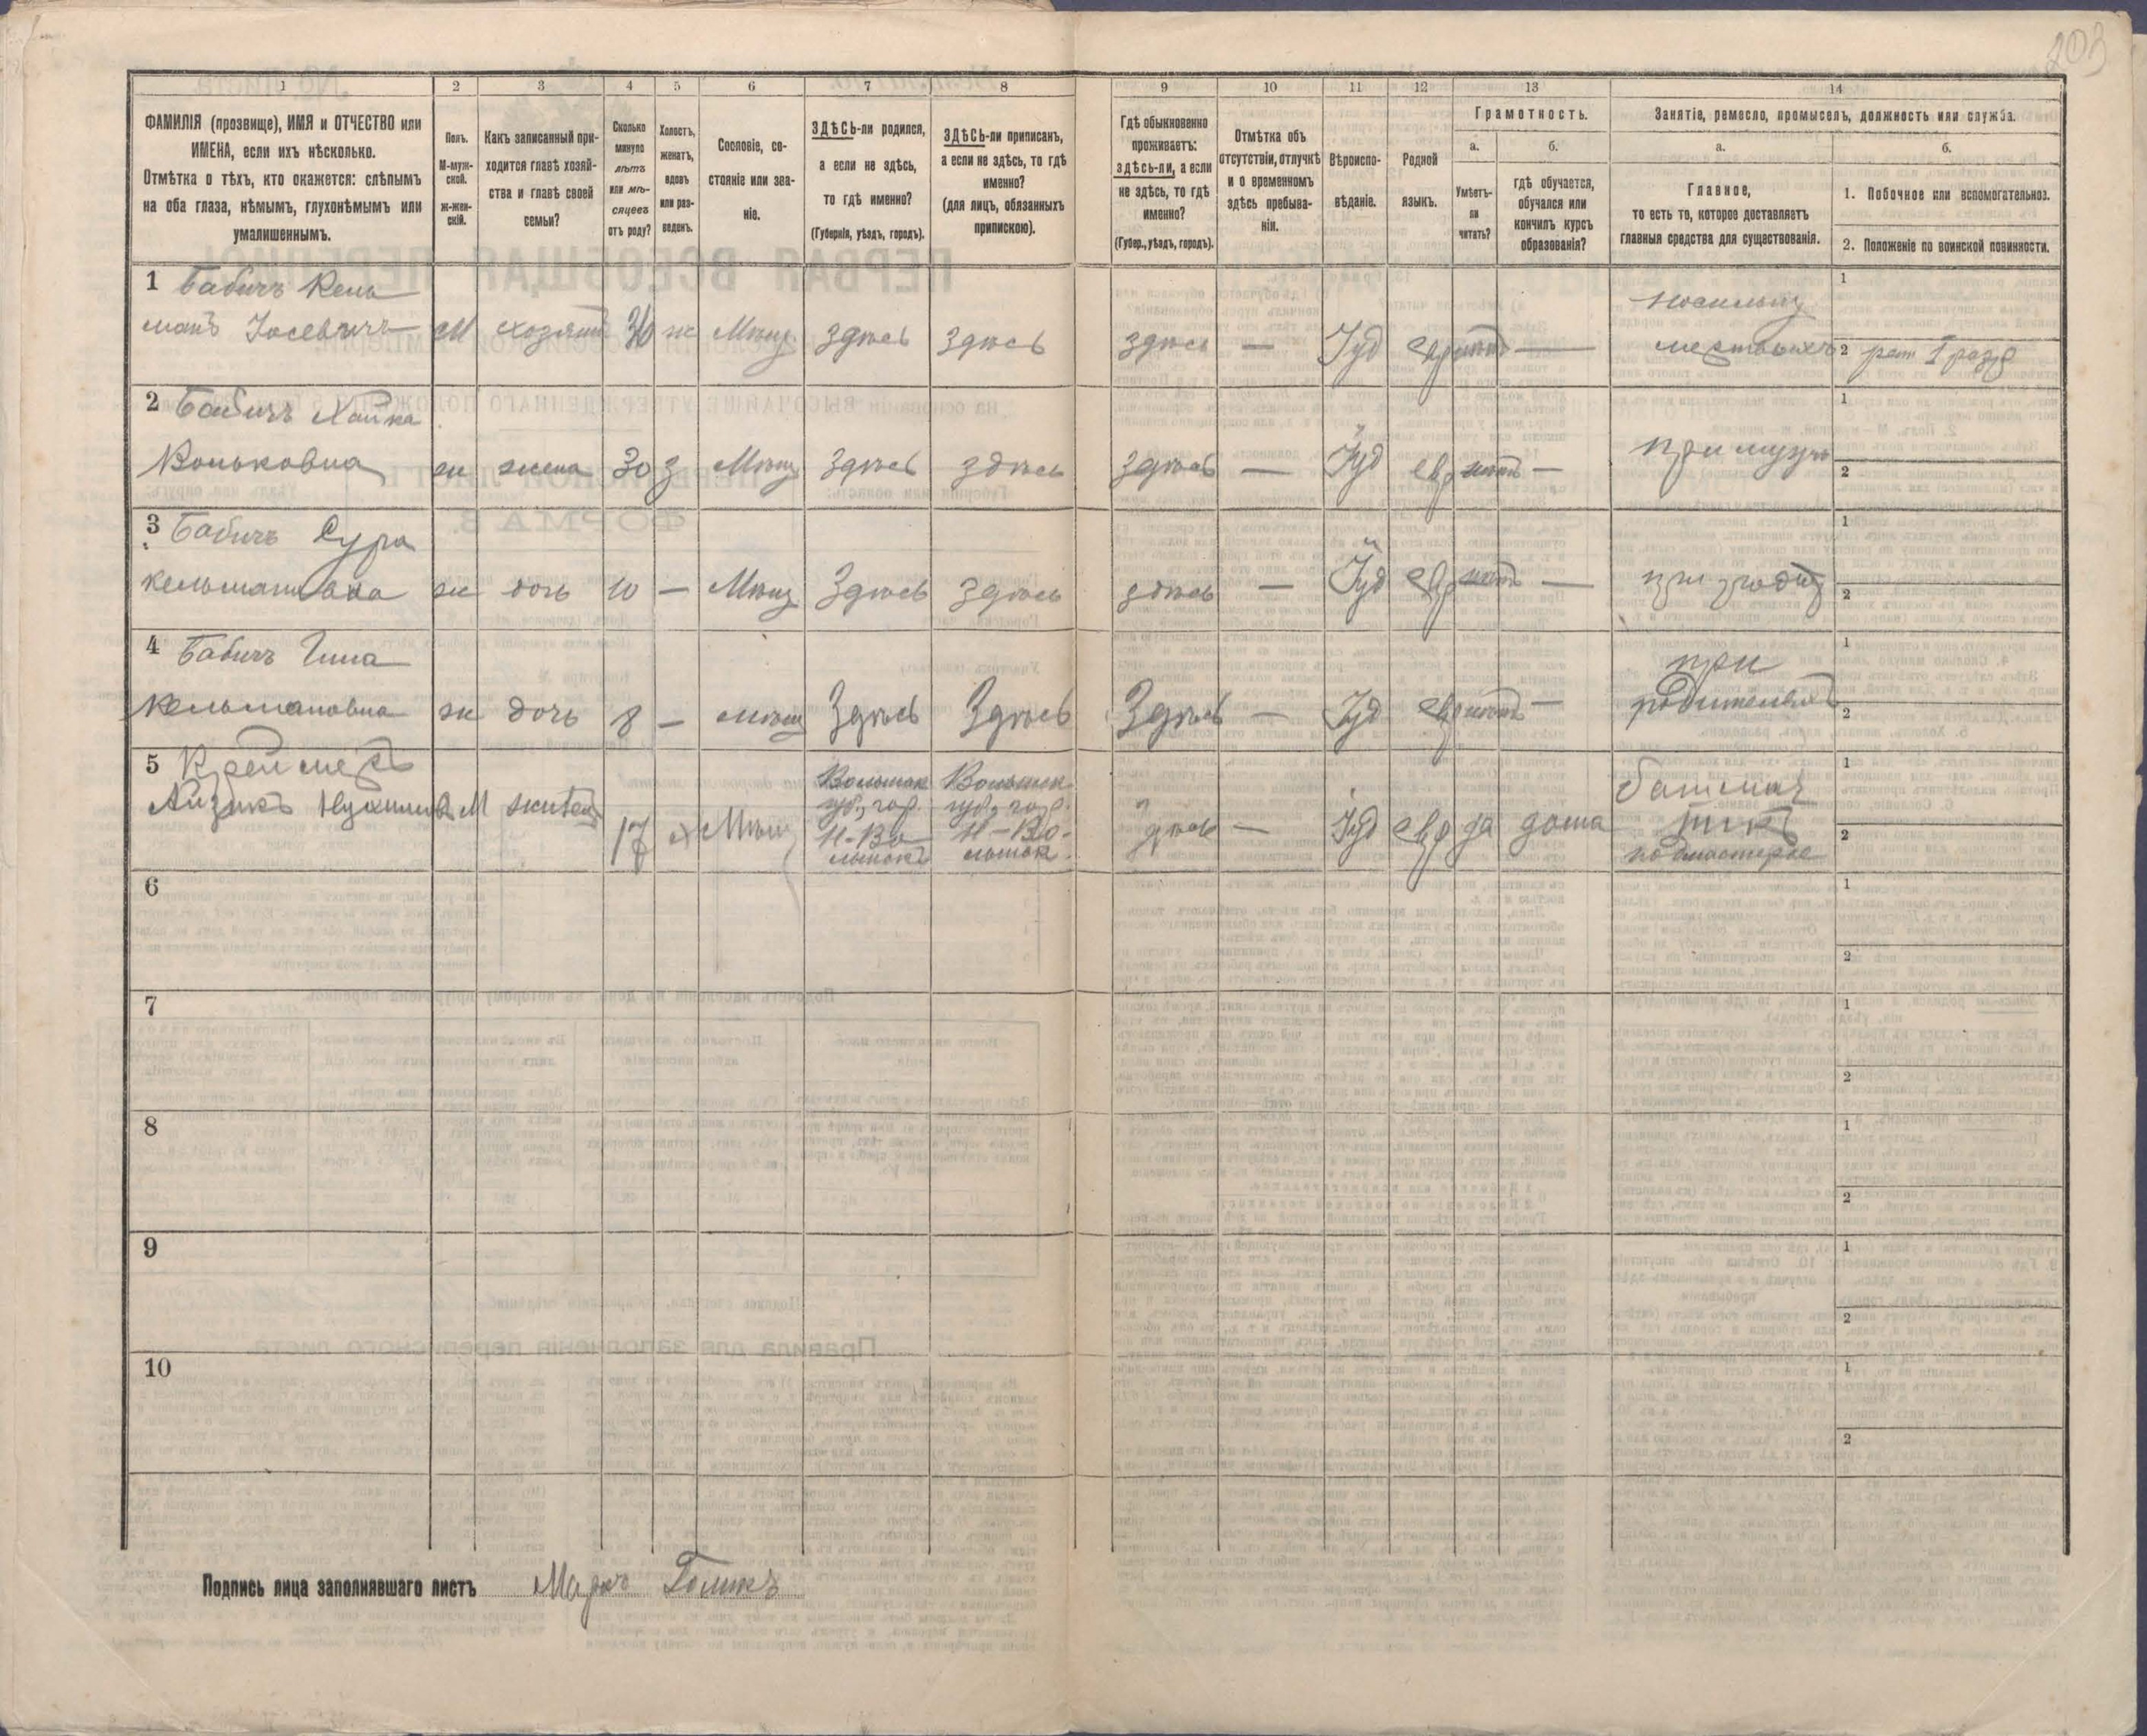 203
1
2
3
4
5
6
7
8
9
10
11
12
13
14
ФАМИЛІЯ (прозвище), ИМЯ и ОТЧЕСТВО или
ИМЕНА, если ихъ нѣсколько.
Отмѣтка о тѣхъ, кто окажется: слѣпымъ
на оба глаза, нѣмымъ, глухонѣмымъ или
умалишеннымъ.
Полъ.
М-муж-
ской.
ж-жен-
скій.
Какъ записанный при-
ходится главѣ хозяй-
ства и главѣ своей
семьи?
Сколько
минуло
лѣтъ
или мѣ-
сяцевъ
отъ роду?
Холостъ,
женатъ,
вдовъ
или раз-
веденъ.
Сословіе, со-
стояніе или зва-
ніе.
ЗДѢСЬ-ли родился,
а если не здѣсь,
то гдѣ именно?
(Губернія, уѣздъ, городъ).
ЗДѢСЬ-ли приписанъ,
а если не здѣсь, то гдѣ
именно?
(для лицъ, обязанныхъ
припискою).
Гдѣ обыкновенно
проживаетъ:
здѣсь-ли, а если
не здѣсь, то гдѣ
именно?
(Губер., уѣздъ, городъ).
Отмѣтка объ
отсутствіи, отлучкѣ
и о временномъ
здѣсь пребыва-
ніи.
Вѣроиспо-
вѣданіе.
Родной
языкъ.
Грамотность.
а.
Умѣетъ-
ли
читать?
б.
гдѣ обучается,
обучался или
кончилъ курсъ
образованія?
Занятіе, ремесло, промыселъ, должность или служба.
а.
Главное,
то есть то, которое доставляетъ
главныя средства для существованія.
б.
1. Побочное или вспомогательное.
2. Положеніе по воинской повинности.
1 Бабичъ Кель
манъ Іосевичъ М хозяинъ ж Мѣщ здѣсь здѣсь здѣсь — Іуд евр нѣтъ —
носильщ
мертвыхъ
1
2 рат I разр
2 Бабичъ Хайка
Вольковна ж жена 30 з Мѣщ здѣсь здѣсь здѣсь — Іуд евр нѣтъ — при мужѣ
1
2
3 Бабичъ Сура
Кельмановна ж дочь 10 — Мѣщ Здѣсь здѣсь здѣсь — Іуд евр нѣтъ — при родит
1
2
4 Бабичъ Гина
Кельмановна ж дочь 8 — мѣщ Здѣсь Здѣсь Здѣсь — Іуд евр нѣтъ —
при
родителяхъ
1
2
5 Креймеръ
Айзикъ М жилец 17 х Мѣщ
Волынск
губ, гор.
Н-Во-
лынскъ
Волынск
губ, гор.
Н-Во-
лынск
здѣсь — Іуд евр да дома
башмач
никъ
подмастерье
1
2
6
1
2
7
1
2
8
1
2
9
1
2
10
1
2
Подпись лица заполнявшаго листъ Голикъ